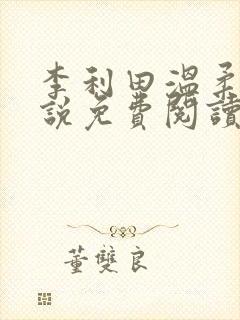 李利田溫柔
說免費閱讀
董雙良